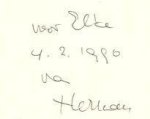 voor Elke
4. 2. 1990
van
Herman